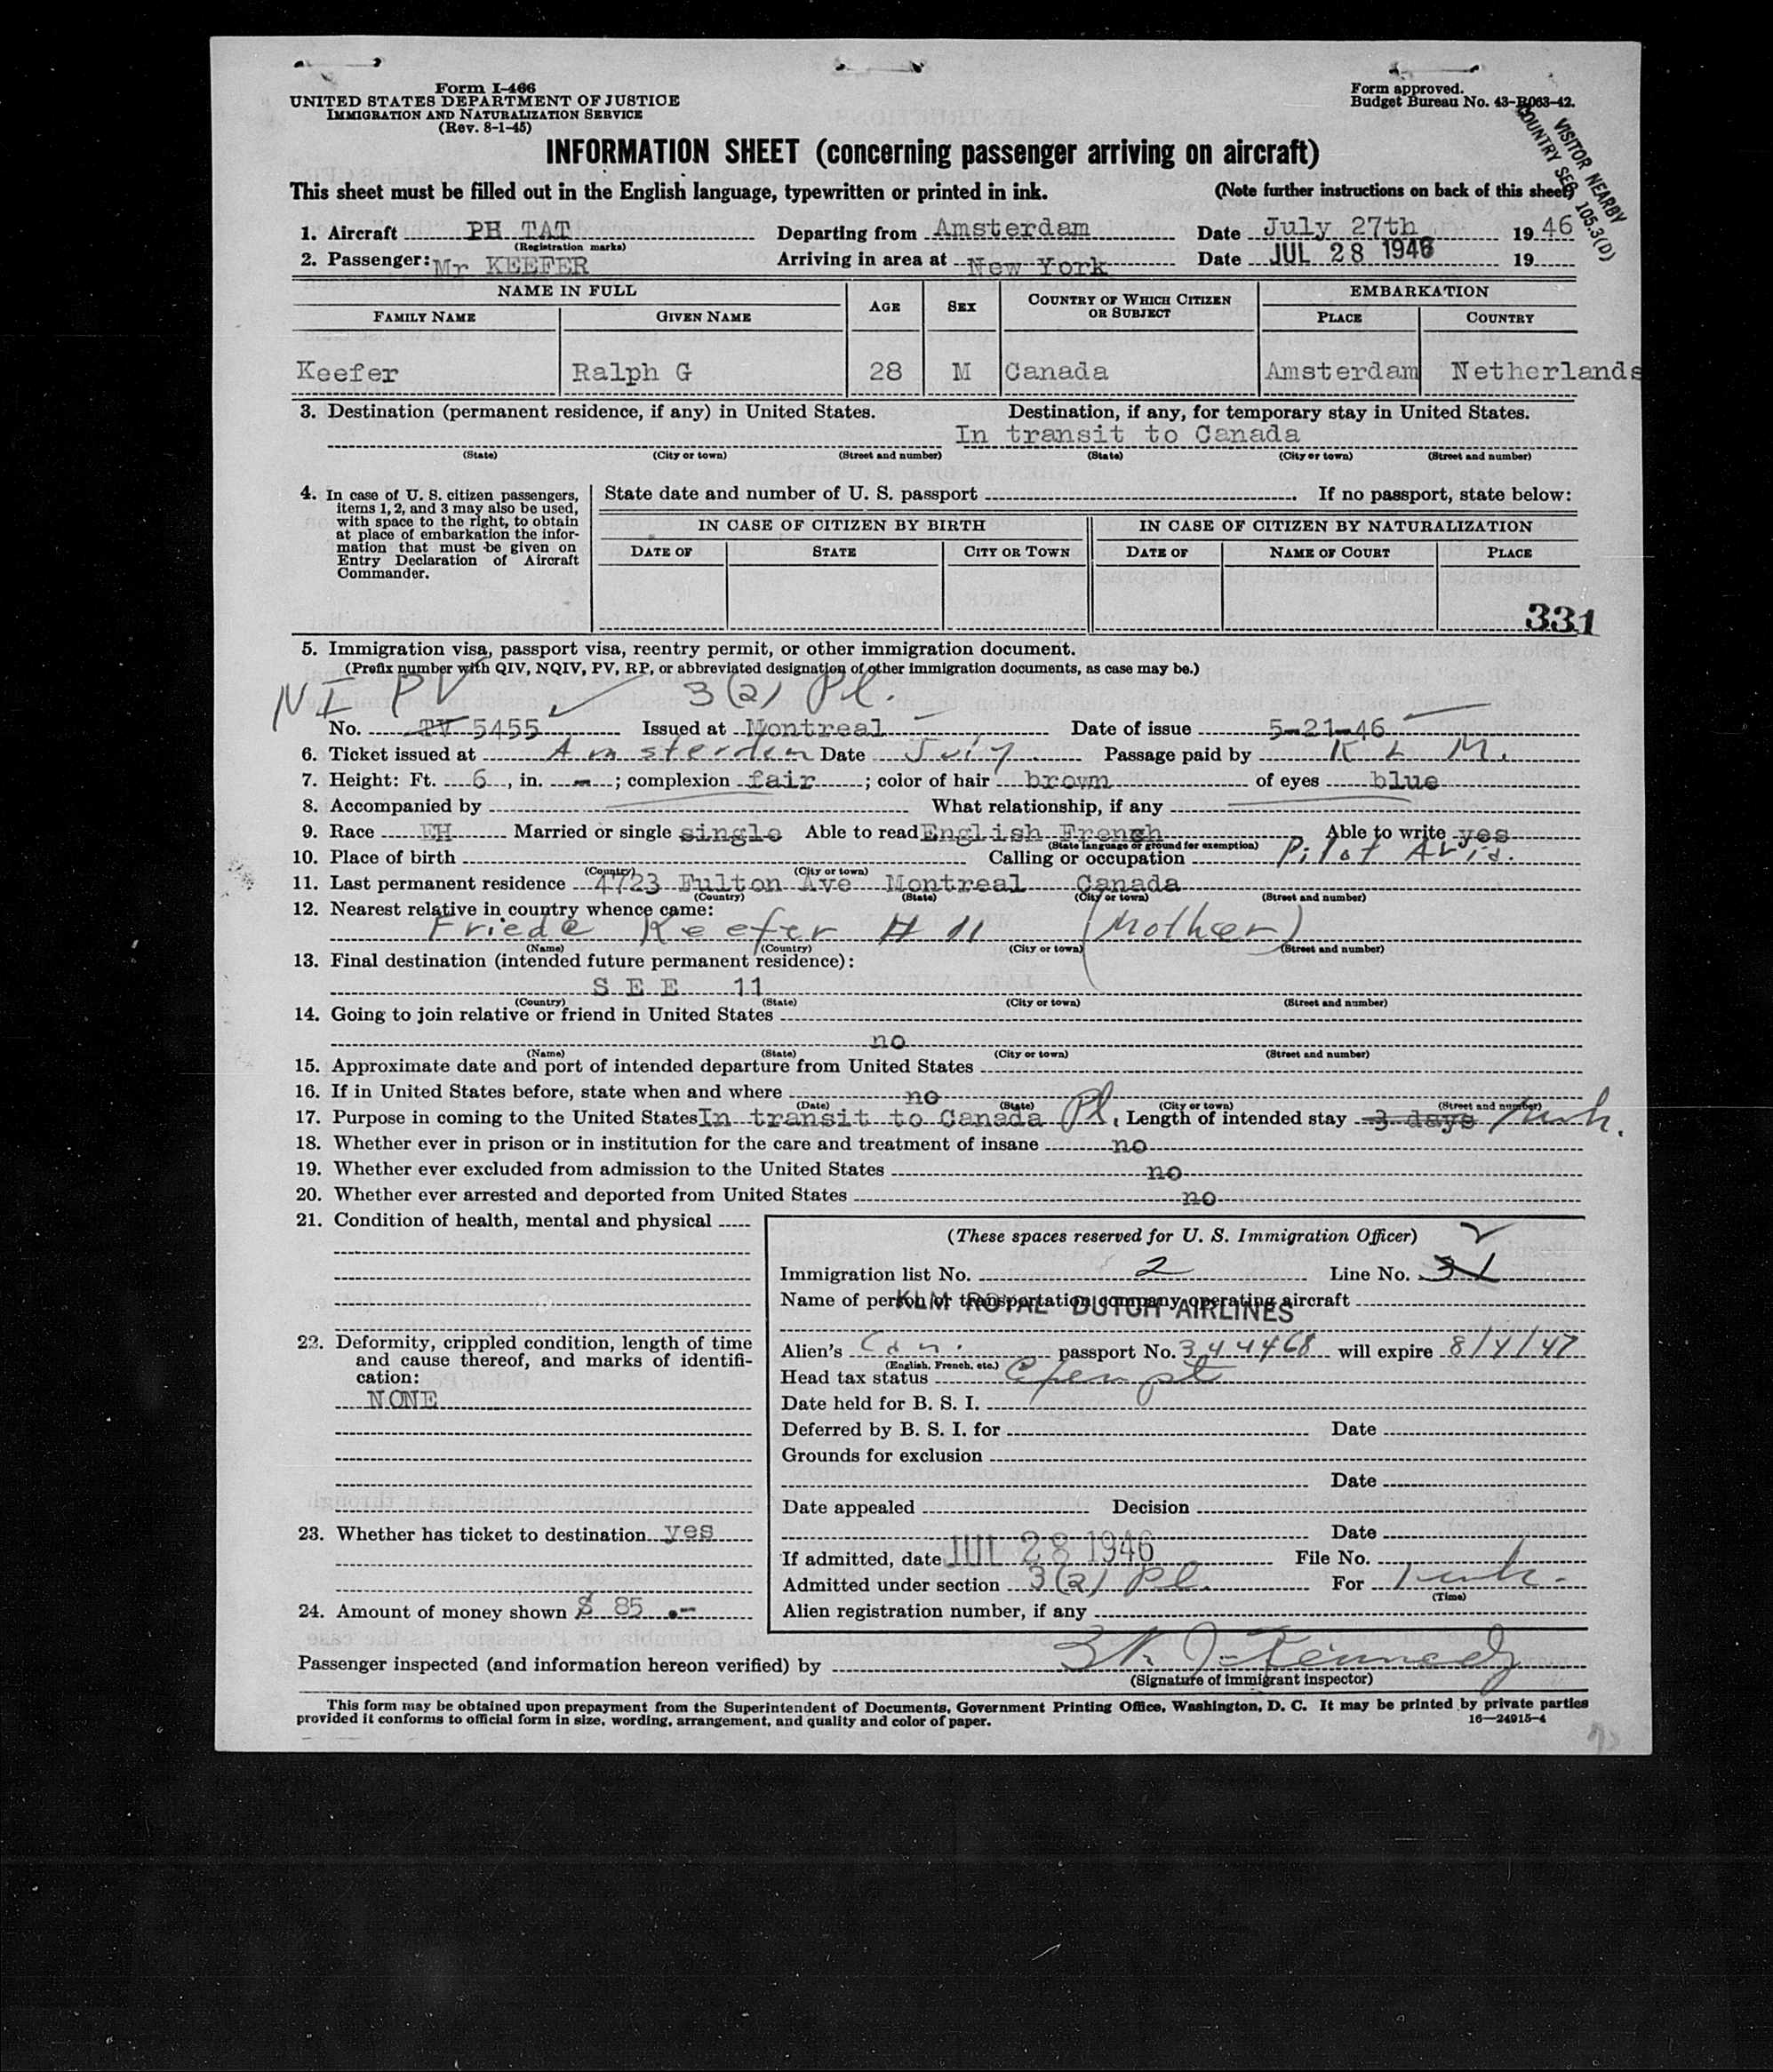 Form I-466
UNITED STATES DEPARTMENT OF JUSTICE
IMMIGRATION AND NATURALIZATION SERVICE
(Rev. 8-1-45)
Form approved.
Budget Bureau No. 43-R063-42.
VISITOR NEARBY
COUNTRY SEC 105.3(D)
INFORMATION SHEET (concerning passenger arriving on aircraft)
This sheet must be filled out in the English language, typewritten or printed in ink. (Note further instructions on back of this sheet)
1. Aircraft PH TAT Departing from Amsterdam Date July 27th 19 46
(Registration marks)
2. Passenger: Mr KEEFER Arriving in area at New York Date JUL 28 1946 19
NAME IN FULL AGE SEX COUNTRY OF WHICH CITIZEN OR SUBJECT EMBARKATION
FAMILY NAME GIVEN NAME PLACE COUNTRY
Keefer Ralph G 28 M Canada Amsterdam Netherlands
3. Destination (permanent residence, if any) in United States. Destination, if any, for temporary stay in United States.
In transit to Canada
(State) (City or town) (Street and number) (State) (City or town) (Street and number)
4. In case of U. S. citizen passengers, items 1, 2, and 3 may also be used, with space to the right, to obtain at place of embarkation the information that must be given on Entry Declaration of Aircraft Commander.
State date and number of U. S. passport . If no passport, state below:
IN CASE OF CITIZEN BY BIRTH IN CASE OF CITIZEN BY NATURALIZATION
DATE OF STATE CITY OR TOWN DATE OF NAME OF COURT PLACE
331
5. Immigration visa, passport visa, reentry permit, or other immigration document.
(Prefix number with QIV, NQIV, PV, RP, or abbreviated designation of other immigration documents, as case may be.)
NI PV 3(2) Pl.
No. TV 5455 Issued at Montreal Date of issue 5-21-46
6. Ticket issued at Amsterdam Date July Passage paid by K L M.
7. Height: Ft. 6, in. -; complexion fair; color of hair brown of eyes blue
8. Accompanied by What relationship, if any
9. Race EH Married or single single Able to read English French Able to write yes
(State language or ground for exemption)
10. Place of birth Calling or occupation Pilot
(Country) (City or town)
11. Last permanent residence 4723 Fulton Ave Montreal Canada
(Country) (State) (City or town) (Street and number)
12. Nearest relative in country whence came:
Friede Keefer # 11 (Mother)
(Name) (Country) (City or town) (Street and number)
13. Final destination (intended future permanent residence):
SEE 11
(Country) (State) (City or town) (Street and number)
14. Going to join relative or friend in United States
no
(Name) (State) (City or town) (Street and number)
15. Approximate date and port of intended departure from United States
16. If in United States before, state when and where no
(Date) (State) (City or town) (Street and number)
17. Purpose in coming to the United States In transit to Canada Pl. Length of intended stay 3 days
18. Whether ever in prison or in institution for the care and treatment of insane no
19. Whether ever excluded from admission to the United States no
20. Whether ever arrested and deported from United States no
21. Condition of health, mental and physical
22. Deformity, crippled condition, length of time and cause thereof, and marks of identification:
NONE
23. Whether has ticket to destination yes
24. Amount of money shown $ 85 .-
(These spaces reserved for U. S. Immigration Officer)
2
Immigration list No. 2 Line No.
Name of person or transportation company operating aircraft
KLM ROYAL DUTCH AIRLINES
Alien's Can. passport No. 344468 will expire 8/4/47
(English, French, etc.)
Head tax status Exempt
Date held for B. S. I.
Deferred by B. S. I. for Date
Grounds for exclusion
Date
Date appealed Decision
Date
If admitted, date JUL 28 1946 File No.
Admitted under section 3(2) Pl. For 1 wk.
(Time)
Alien registration number, if any
Passenger inspected (and information hereon verified) by Kennedy
(Signature of immigrant inspector)
This form may be obtained upon prepayment from the Superintendent of Documents, Government Printing Office, Washington, D. C. It may be printed by private parties
provided it conforms to official form in size, wording, arrangement, and quality and color of paper. 16—24915-4